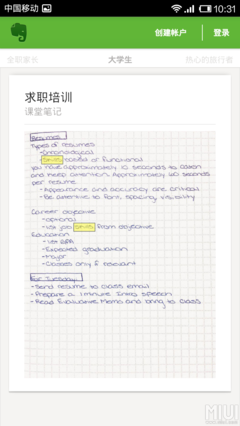 中国移动
10:31
创建帐户
登录
全职家长
大学生
热心的旅行者
求职培训
课堂笔记
Resumes
Types of resumes
-Chronological
-Skills based or Functional
You have approximately 10 seconds to catch
and keep attention. Approximately 40 seconds
per resume
-Appearance and accuracy are critical
-Be attentive to font, spacing visibility
Career objective
-optional
-1st job skills from objective
Education
-1st GPA
-Expected graduation
-Major
-Classes only if relevant
For Tuesday
-Send resume to class email
-Prepare a 1 minute intro speech
-Read Evaluative Memo and bring to class
MIUI